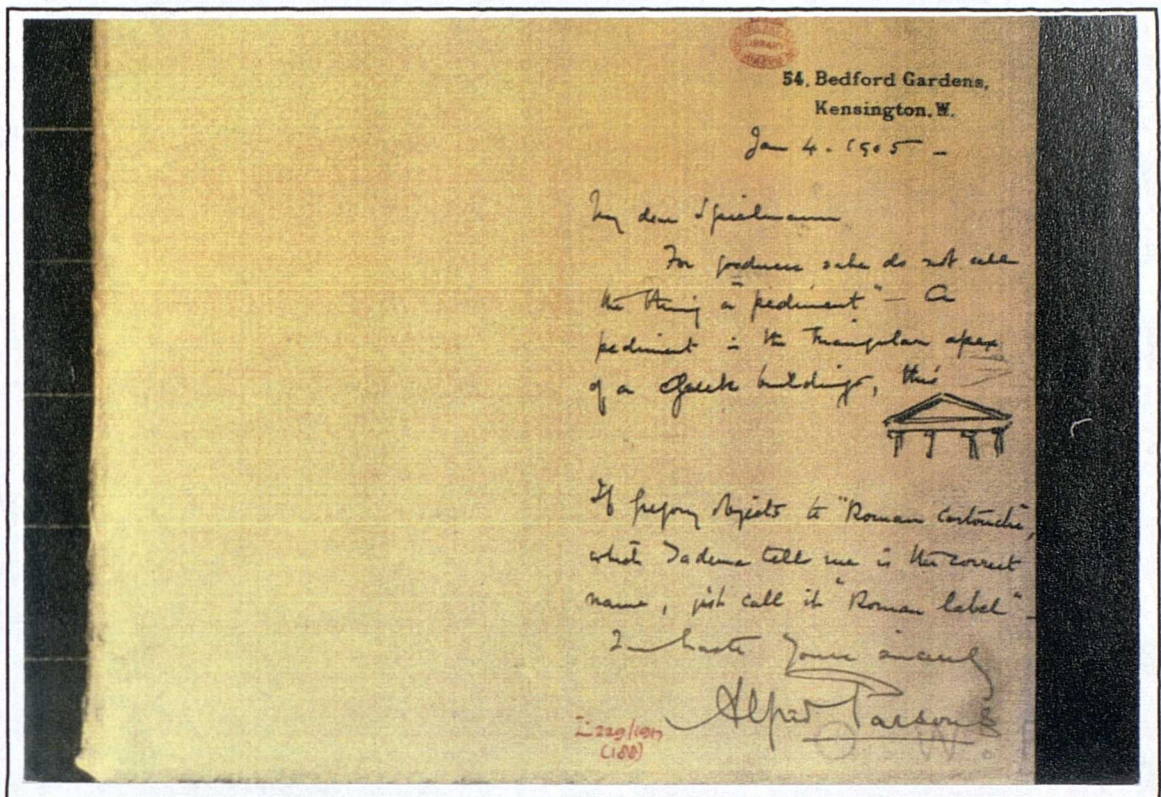 LIBRARY
54, Bedford Gardens,
Kensington. W.
Jan 4. 1905 -
My dear Spielmann
For goodness sake do not call
the thing a "pediment" - A
pediment is the triangular apex
of a Greek buildings, thus
If Gregory objects to "Roman cartouche",
which Tadema tells me is the correct
name, just call it "Roman label" -
In haste Yours sincerely
Alfred Parsons
229/1917
(188)